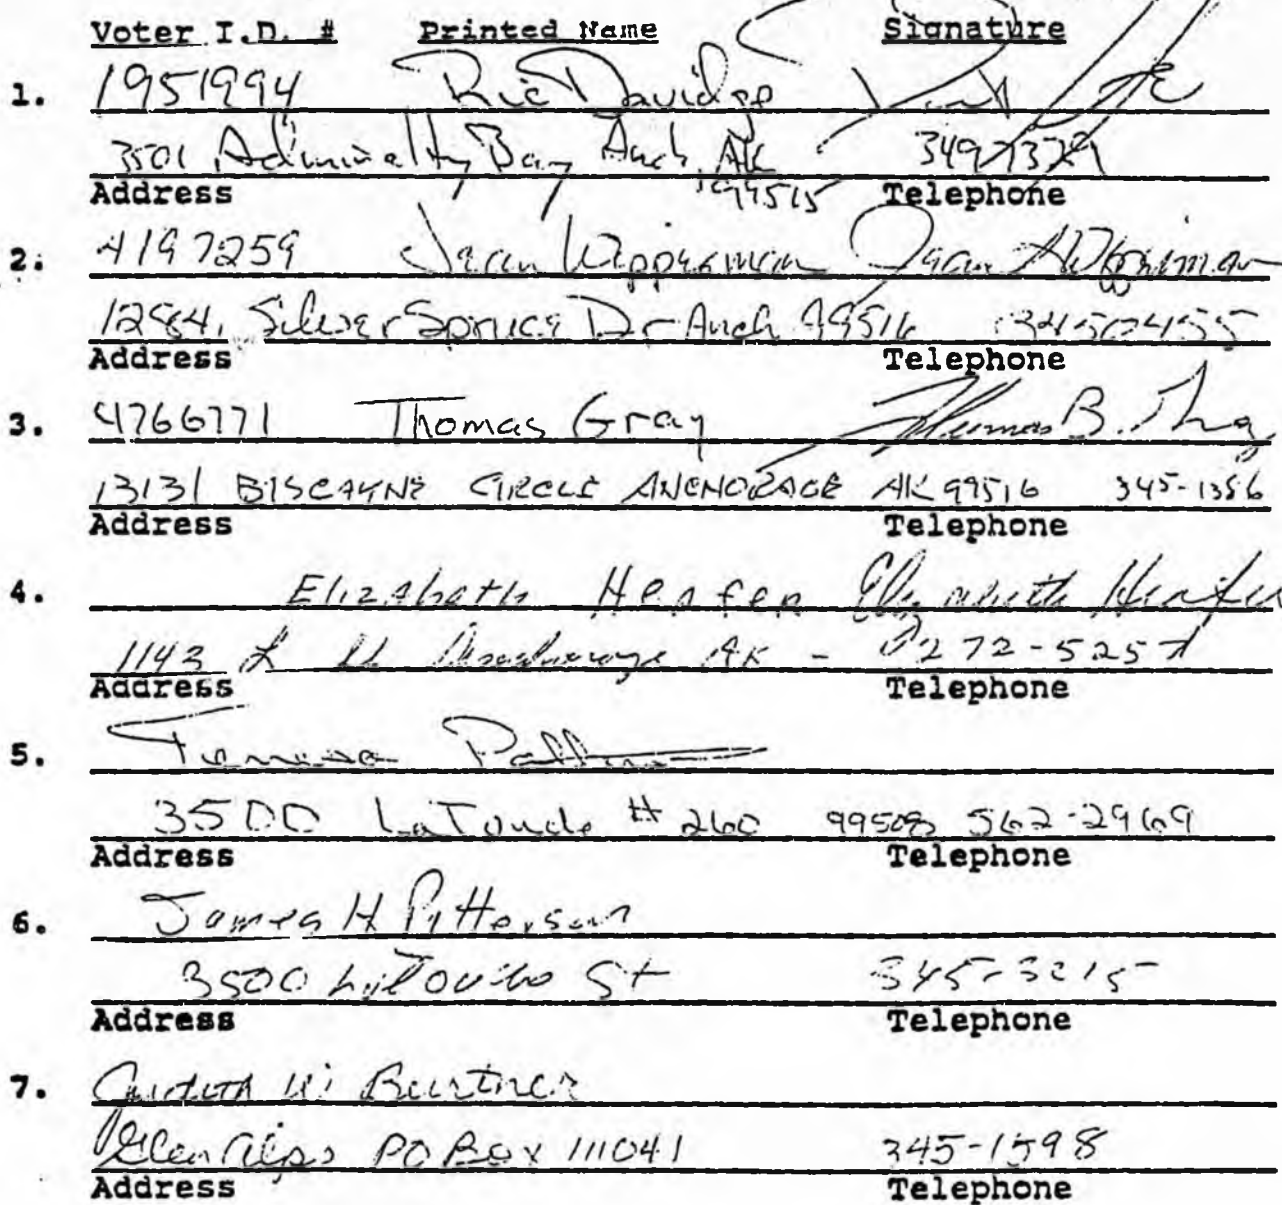 Voter I.D. # Printed Name Signature
1. 1951994 Ric Davidge
3501 Admiralty Bay Anch, AK 3497329
99515
Address Telephone
2. 4197259 Jean Wipperman Jean Wipperman
12841 Silver Spruce Dr Anch 99516 3450455
Address Telephone
3. 4766771 Thomas Gray Thomas B. Gray
13131 BISCAYNE CIRCLE ANCHORAGE AK 99516 345-1356
Address Telephone
4. Elizabeth Henfer Elizabeth Henfer
1143 L Anchorage AK - 272-5257
Address Telephone
5.
3500 LaTouche #260 99508 562-2969
Address Telephone
6. James H
3500 LaTouche St 345-3215
Address Telephone
7. Judith W Burtner
Glen Alps PO Box 111041 345-1598
Address Telephone